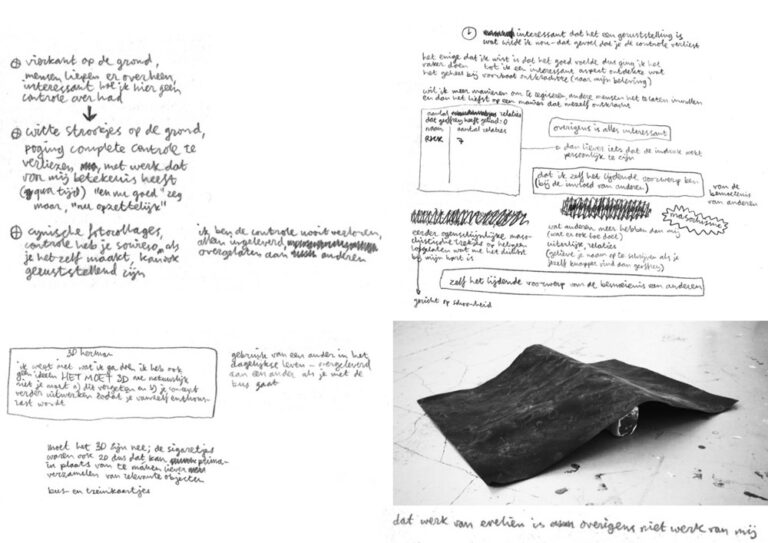 vierkant op de grond,
mensen liepen er overheen,
interessant hoe ik hier geen
controle over had
witte strookjes op de grond,
poging complete controle te
verliezen, met werk dat
van mij betekenis heeft
(qua tijd) "en nu goed" zeg
maar, "nu opzettelijk"
cynische fotocollages,
controle heb je sowieso als
je het zelf maakt, kan ook
geruststellend zijn
ik ben de controle nooit verloren,
alleen ingeleverd,
overgelaten aan anderen
3D herman
ik weet niet wat ik ga doen ik heb ook
geen ideeën HET MOET 3D nee natuurlijk
niet je moet a) dit vergeten en b) je concept
verder uitwerken zodat je vanzelf enthousi-
ast wordt
gebruik van een ander in het
dagelijkse leven - overgeleverd
aan een ander als je met de
bus gaat
moet het 3D zijn nee; de sigaretjes
waren ook 2D dus dat kan prima-
in plaats van te maken liever
verzamelen van relevante objecten
bus- en treinkaartjes
interessant dat het een geruststelling is
wat wilde ik nou - dat gevoel dat je de controle verliest
het enige dat ik wist is dat het goed voelde dus ging ik het
vaker doen tot ik een interessant aspect ontdekte wat
het geheel bij voorbaat ontkrachtte (naar mijn beleving)
wil ik meer manieren om te registeren, andere mensen het te laten invullen
en dan het liefst op een manier dat mezelf ontkracht
aantal relaties
dat geoffrey heeft gehad: 0
naam aantal relaties
RICK 7
overigens is alles interessant
dan liever iets dat de indruk wekt
persoonlijk te zijn
dat ik zelf het lijdende voorwerp ben
(bij de invloed van anderen)
van de
bemoeienis
van anderen
masochisme
eerder ogenschijnlijke maso-
chistische trekjes op hetgeen
losgelaten wat me het dichtst
bij mijn hart is
wat anderen meer hebben dan mij
(wat en ook hoe dan)
uiterlijk, relaties
(gelieve je naam op te schrijven als je
jezelf knapper vind dan geoffrey)
zelf het lijdende voorwerp van de bemoeienis van anderen
gericht op schoonheid
dat werk van evelien is overigens niet werk van mij